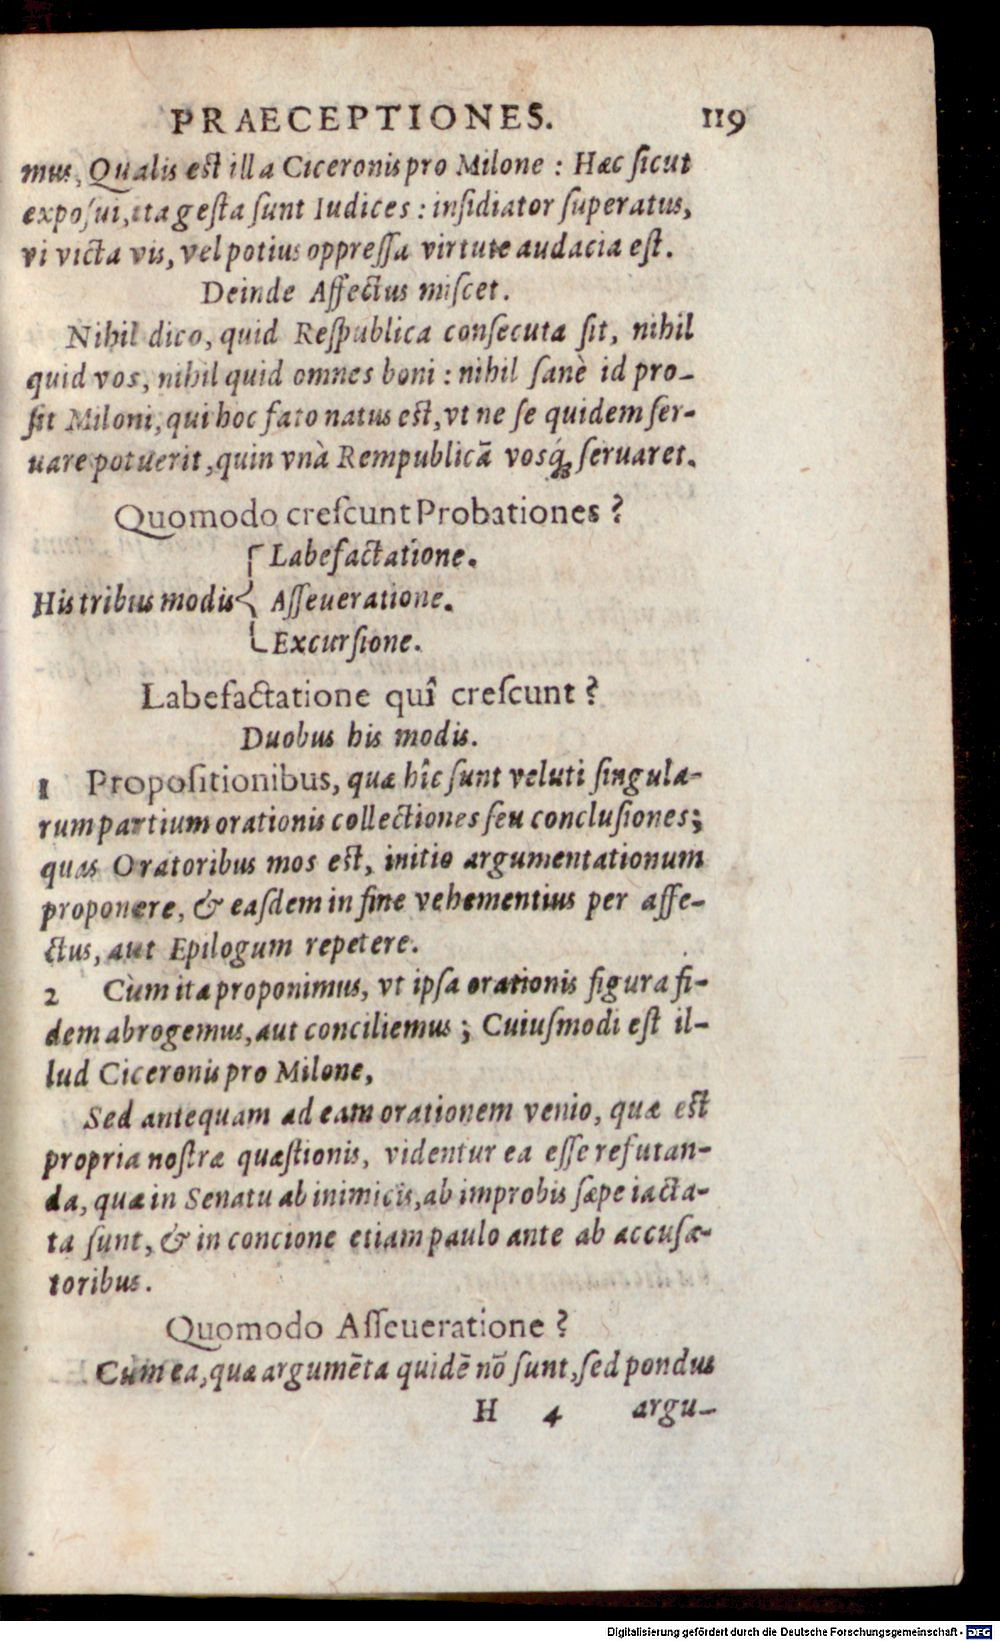 PRAECEPTIONES. 119
mus, Qualis est illa Ciceronis pro Milone : Hæc sicut
exposui, ita gesta sunt Iudices : insidiator superatus,
vi victa vis, vel potius oppressa virtute audacia est.
Deinde Affectus miscet.
Nihil dico, quid Respublica consecuta sit, nihil
quid vos, nihil quid omnes boni : nihil sanè id pro-
sit Miloni, qui hoc fato natus est, vt ne se quidem ser-
uare potuerit, quin vnà Rempublicā vosq́; seruaret.
Quomodo crescunt Probationes ?
Labefactatione.
His tribus modis { Asseueratione.
Excursione.
Labefactatione quî crescunt ?
Duobus his modis.
1 Propositionibus, quæ hîc sunt veluti singula-
rum partium orationis collectiones seu conclusiones;
quas Oratoribus mos est, initio argumentationum
proponere, & easdem in fine vehementius per affe-
ctus, aut Epilogum repetere.
2 Cùm ita proponimus, vt ipsa orationis figura fi-
dem abrogemus, aut conciliemus ; Cuiusmodi est il-
lud Ciceronis pro Milone,
Sed antequam ad eam orationem venio, quæ est
propria nostræ quæstionis, videntur ea esse refutan-
da, quæ in Senatu ab inimicis, ab improbis sæpe iacta-
ta sunt, & in concione etiam paulo ante ab accusa-
toribus.
Quomodo Asseueratione ?
Cum ea, quæ argumēta quidē nō sunt, sed pondus
H 4 argu-
Digitalisierung gefördert durch die Deutsche Forschungsgemeinschaft - DFG